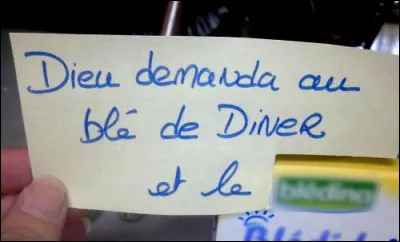 Dieu demanda au
blé de DINER
et le
blédina